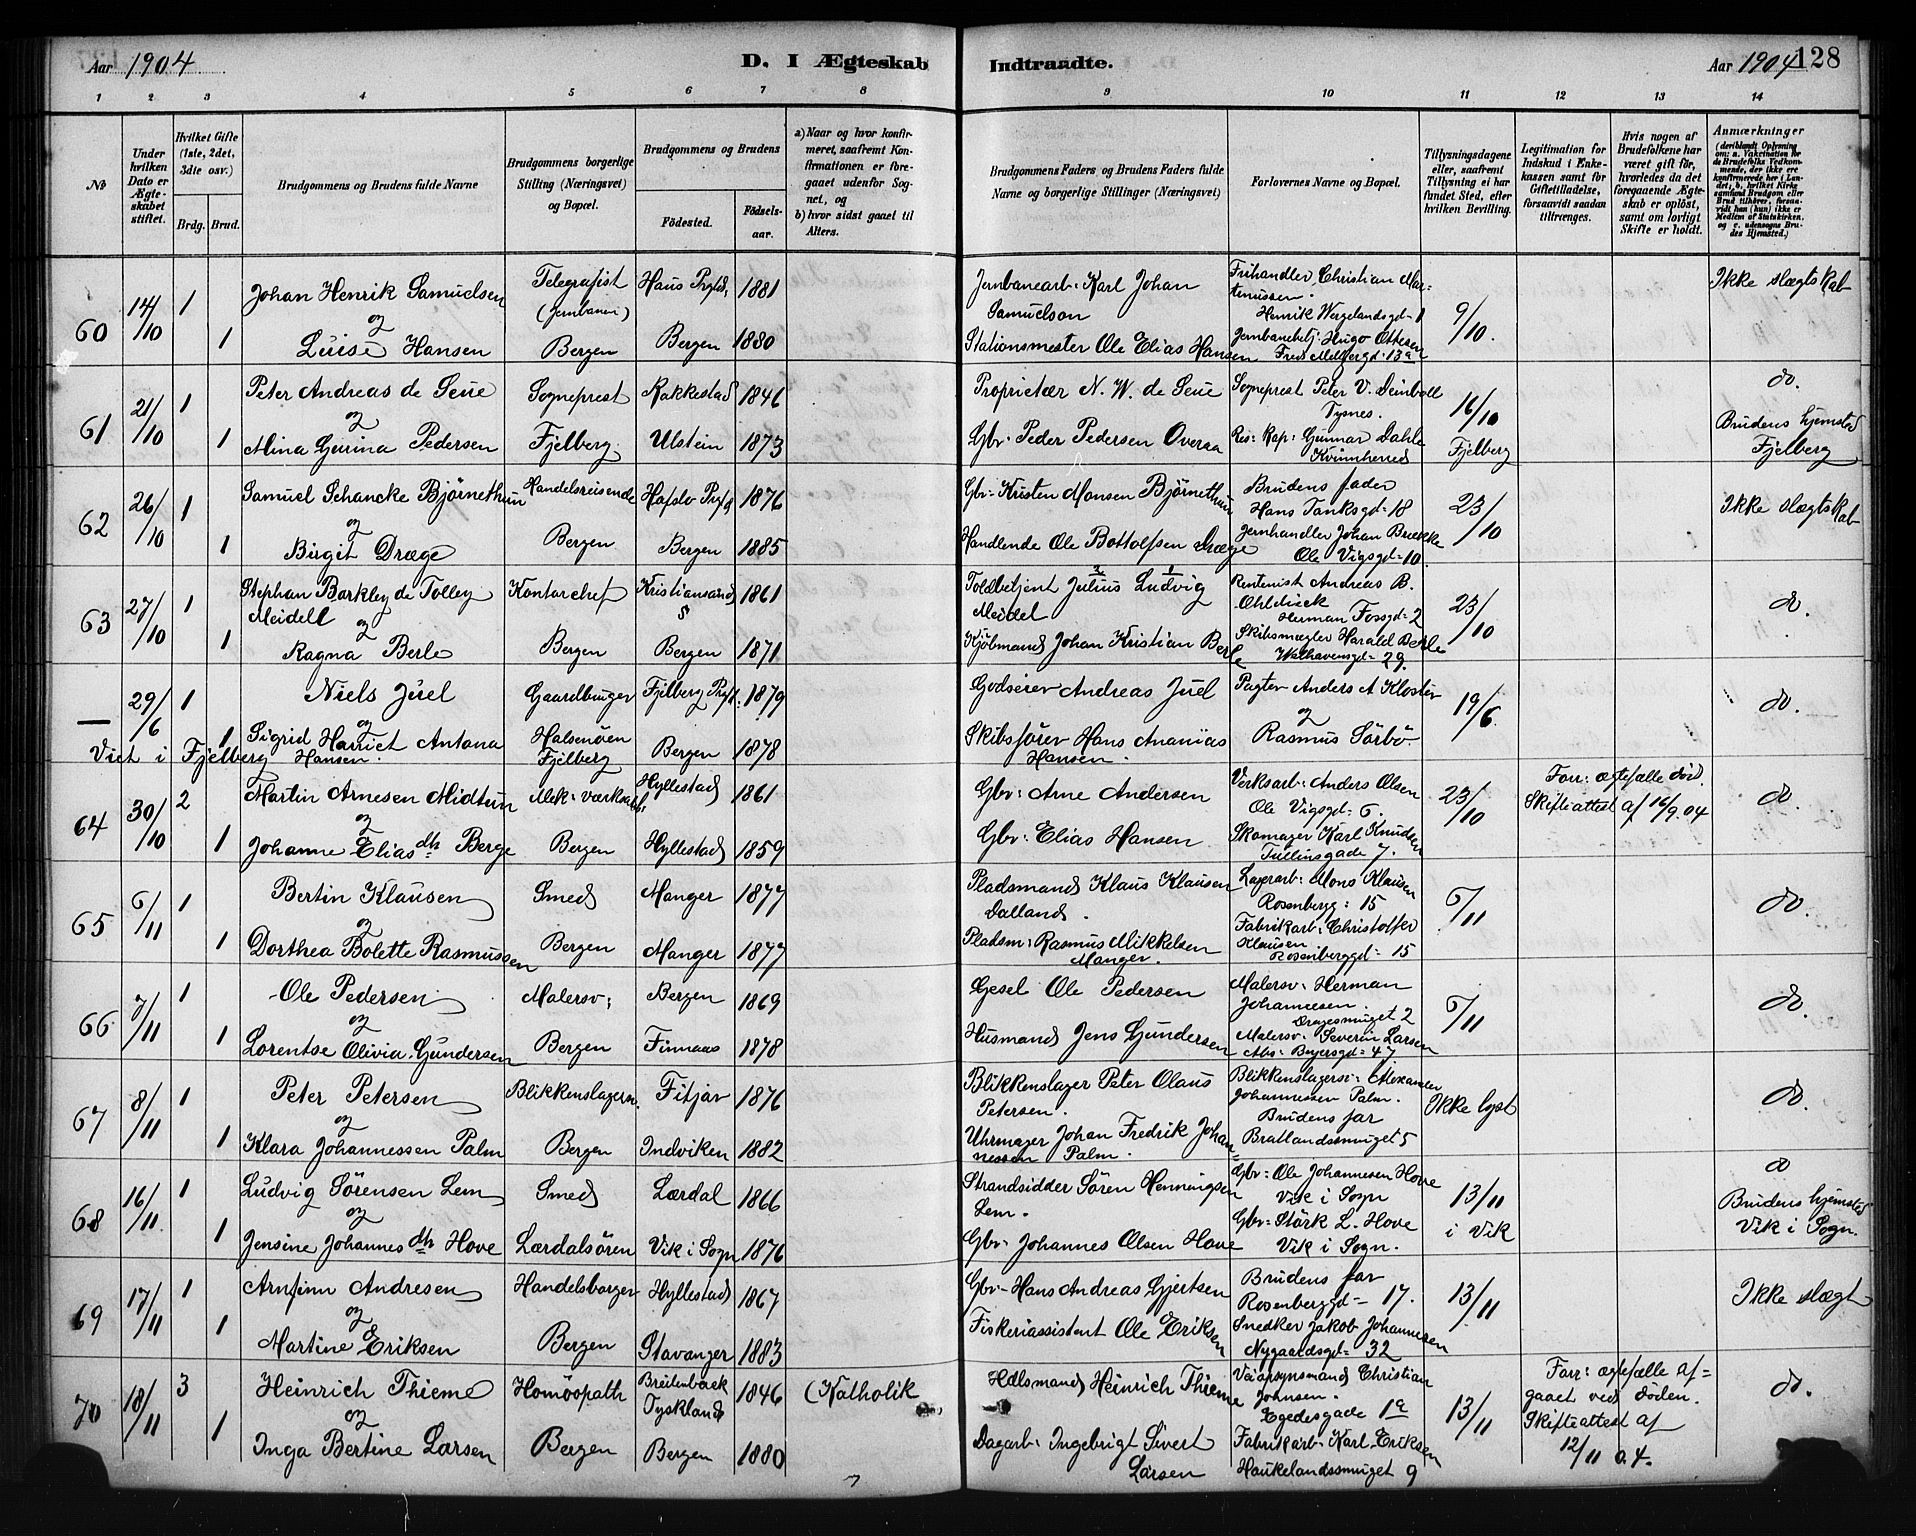 Aar 1904
D. I Ægteskab Indtraadte.
Aar 1904 128
1 2 3 4 5 6 7 8 9 10 11 12 13 14
No
Under hvilken Dato er Ægteskabet stiftet.
Hvilket Gifte (1ste, 2det, 3die osv.)
Brdg. Brud.
Brudgommens og Brudens fulde Navne
Brudgommens borgerlige Stilling (Næringsvei) og Bopæl.
Brudgommens og Brudens
Födested. Födselsaar.
a) Naar og hvor konfirmeret, saafremt Konfirmationen er foregaaet udenfor Sognet, og
b) hvor sidst gaaet til Alters.
Brudgommens Faders og Brudens Faders fulde Navne og borgerlige Stillinger (Næringsvei)
Forlovernes Navne og Bopæl.
Tillysningsdagene eller, saafremt Tillysning ei har fundet Sted, efter hvilken Bevilling.
Legitimation for Indskud i Enkekassen samt for Giftetilladelse, forsaavidt saadan tiltrænges.
Hvis nogen af Brudefolkene har været gift før, hvorledes da det foregaaende Ægteskab er oplöst, samt om lovligt Skifte er holdt.
Anmærkninger (deriblandt Oplysning om: a. Vakcination for de Brudefolks Vedkommende, der ikke ere konfirmerede her i Landet; b. hvilket Kirkesamfund Brudgom eller Brud tilhörer, forsaavidt han (hun) ikke er Medlem af Statskirken, og c. udensogns Brudes Hjemsted.)
60 14/10 1 Johan Henrik Samuelsen Telegrafist (Jernbanen) Haus Prgjld. 1881 Jernbanearb: Karl Johan Samuelson Frihandler Christian Martinussen. Henrik Wergelandsgd= 1 9/10. Ikke slægtskab
og
1 Luise Hansen Bergen Bergen 1880 Stationsmester Ole Elias Hansen Jernbanebetj. Hugo Ottesen Fred. Meltzergd. 13a
61 21/10 1 Peter Andreas de Seue Sogneprest Rakkestad 1846 Proprietær N. W. de Seue Sogneprest Peter V. Deinboll Tysnes. 16/10 do.
og
1 Mina Gurina Pedersen Fjelberg Ulstein 1873 Gbr. Peder Pedersen Overaa Res: Kap: Gunnar Dahle Kvinnherred Fjelberg Brudens hjemsted Fjelberg
62 26/10 1 Samuel Schancke Björnethun Handelsreisende Hafslo Prgjld 1876 Gbr: Kristen Monsen Björnethun Brudens fader Hans Tanksgd= 18 23/10 Ikke slægtskab
og
1 Birgit Dræge Bergen Bergen 1885 Handlende Ole Bottolfsen Dræge Jernhandler Johan Brække Ole Vigsgd= 10.
63 27/10 1 Stephan Barkley de Tolley Meidell Kontorchef Kristiansand S 1861 Toldbetjent Julius Ludvig Meidel Rentenist Andreas B. Ohldieck Herman Fossgd= 2 23/10 do.
og
1 Ragna Berle Bergen Bergen 1871 Kjöbmand Johan Kristian Berle Skibsmægler Harald Berle Welhavensgd= 29.
— 29/6 1 Niels Juel Gaardbruger Fjelberg Prgjld. 1879 Godseier Andreas Juel Pagter Anders A Kloster 19/6. do.
og
1 Sigrid Harriet Antona Hansen. Halsenöen Fjelberg Bergen 1878 Skibsförer Hans Ananias Hansen. og Rasmus Sörbö.
Viet i Fjelberg
64 30/10 2 Martin Arnesen Midtun Mek: værksarb. Hyllestad 1861 Gbr: Arne Andersen Verksarb: Anders Olsen Ole Vigsgd= 6. 23/10 Forr: ægtefælle död. Skifteattest af 16/9.04 do.
og
1 Johanne Eliasdh Berge Bergen Hyllestad 1859 Gbr: Elias Hansen Skomager Karl Knudsen Tullinsgade 7.
65 6/11 1 Bertin Klausen Smed Manger 1877 Pladsmand Klaus Klausen Dalland. Lagerarb: Mons Klausen Rosenbergg: 15 6/11 do.
og
1 Dorthea Bolette Rasmussen Bergen Manger 1877 Pladsm: Rasmus Mikkelsen Manger. Fabrikarb: Christoffer Klausen Rosenberggd= 15
66 7/11 1 Ole Pedersen Malersv: Bergen 1869 Gesel Ole Pedersen Malersv: Herman Johannessen. Dragesmuget 2 6/11 do.
og
1 Lorentse Olivia Gundersen Bergen Finnaas 1878 Husmand Jens Gundersen Malersv: Severin Larsen Abs: Beyersgd= 47
67 8/11 1 Peter Petersen Blikkenslagersv. Fitjar 1876 Blikkenslager Peter Olaus Petersen. Blikkenslagersv: Alexander Johannessen Palm. Ikke lyst do.
og
1 Klara Johannessen Palm Bergen Indviken 1882 Uhrmager Johan Fredrik Johannessen Palm. Brudens far Bratlandssmuget 5
68 16/11. 1 Ludvig Sörensen Lem Smed Lærdal 1866 Strandsidder Sören Henningsen Lem. Gbr: Ole Johannesen Hove Vik i Sogn 13/11 do
og
1 Jensine Johannesdh Hove Lærdalsören Vik i Sogn 1876 Gbr= Johannes Olsen Hove Gbr= Störk L. Hove Vik i Sogn. i Vik Brudens hjemsted Vik i Sogn.
69 17/11 1 Arnfinn Andresen Handelsborger Hyllestad 1867 Gbr= Hans Andreas Gjertsen Brudens far Rosenberggd= 17. 13/11 Ikke slægt
og
1 Martine Eriksen Bergen Stavanger 1883 Fiskeriassistent Ole Eriksen Snedker Jakob Johannesen Nygaardsgd= 32
70 18/11 3 Heinrich Thieme Homöopath Breitenback Tyskland 1846 (Katholik Hdlsmand Heinrich Thieme Veiopsynsmand Christian Johnsen. Egedesgade 1a 13/11 Forr: ægtefælle afgaaet ved döden. Skifteattest af 12/11 04. do.
og
1 Inga Bertine Larsen Bergen Bergen 1880 Dagarb: Ingebrigt Sivert Larsen Fabrikarb. Karl Eriksen Haukelandssmuget 9